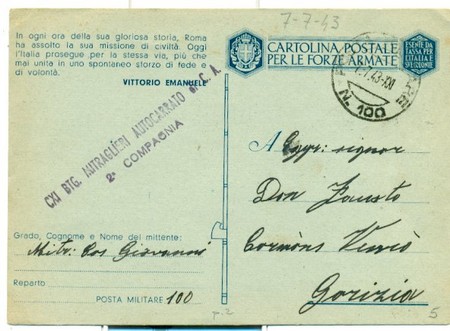 7-7-43
In ogni ora della sua gloriosa storia, Roma
ha assolto la sua missione di civiltà. Oggi
l'Italia prosegue per la stessa via, più che
mai unita in uno spontaneo sforzo di fede e
di volontà.
VITTORIO EMANUELE
CARTOLINA POSTALE
PER LE FORZE ARMATE
ESENTE DA
TASSA PER
L'ITALIA E
7.43-XXI
N. 100
CXI BTG. MITRAGLIERI AUTOCARRATO C. A.
2ª COMPAGNIA
A signor
Don Fausto
Cormòns
Gorizia
Grado, Cognome e Nome del mittente:
Mitr. Cos Giovanni
Reparto
POSTA MILITARE 100
p. 2
5